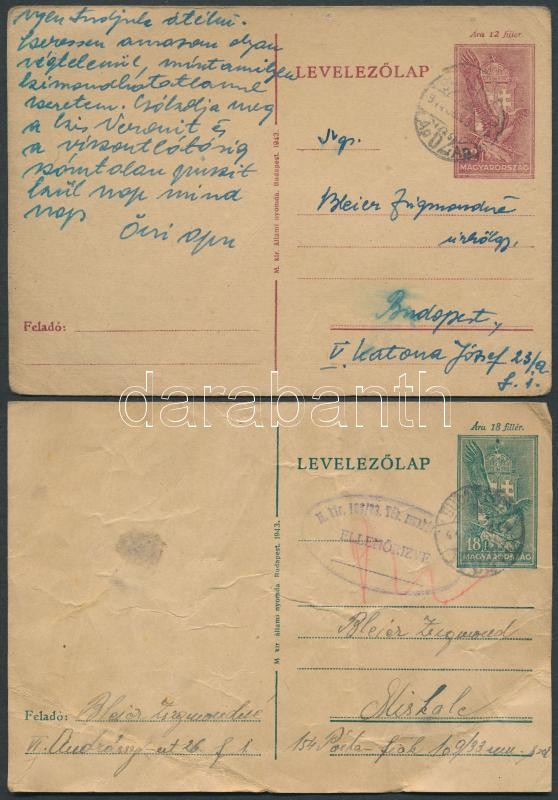 Ára 12 fillér.
LEVELEZŐLAP
MAGYARORSZÁG
végtelenül, mint amilyen
kimondhatatlanul
szeretem. Csókolja meg
a kis Veronit és
a viszontlátásig
számtalan puszit
küld nap mind
nap
Őri apu
Feladó:
M. kir. állami nyomda. Budapest. 1943.
Bleier Zsigmondné
Budapest,
V. Katona József 23/a
f. 1.
darabanth
Ára 18 fillér.
LEVELEZŐLAP
18
MAGYARORSZÁG
ELLENŐRIZVE
M. kir. állami nyomda. Budapest. 1943.
Bleier Zsigmond
Miskolc
154 Posta-fiók 109/33 mu. szd
Feladó: Bleier Zsigmondné
VI. Andrássy-út 26. f 1